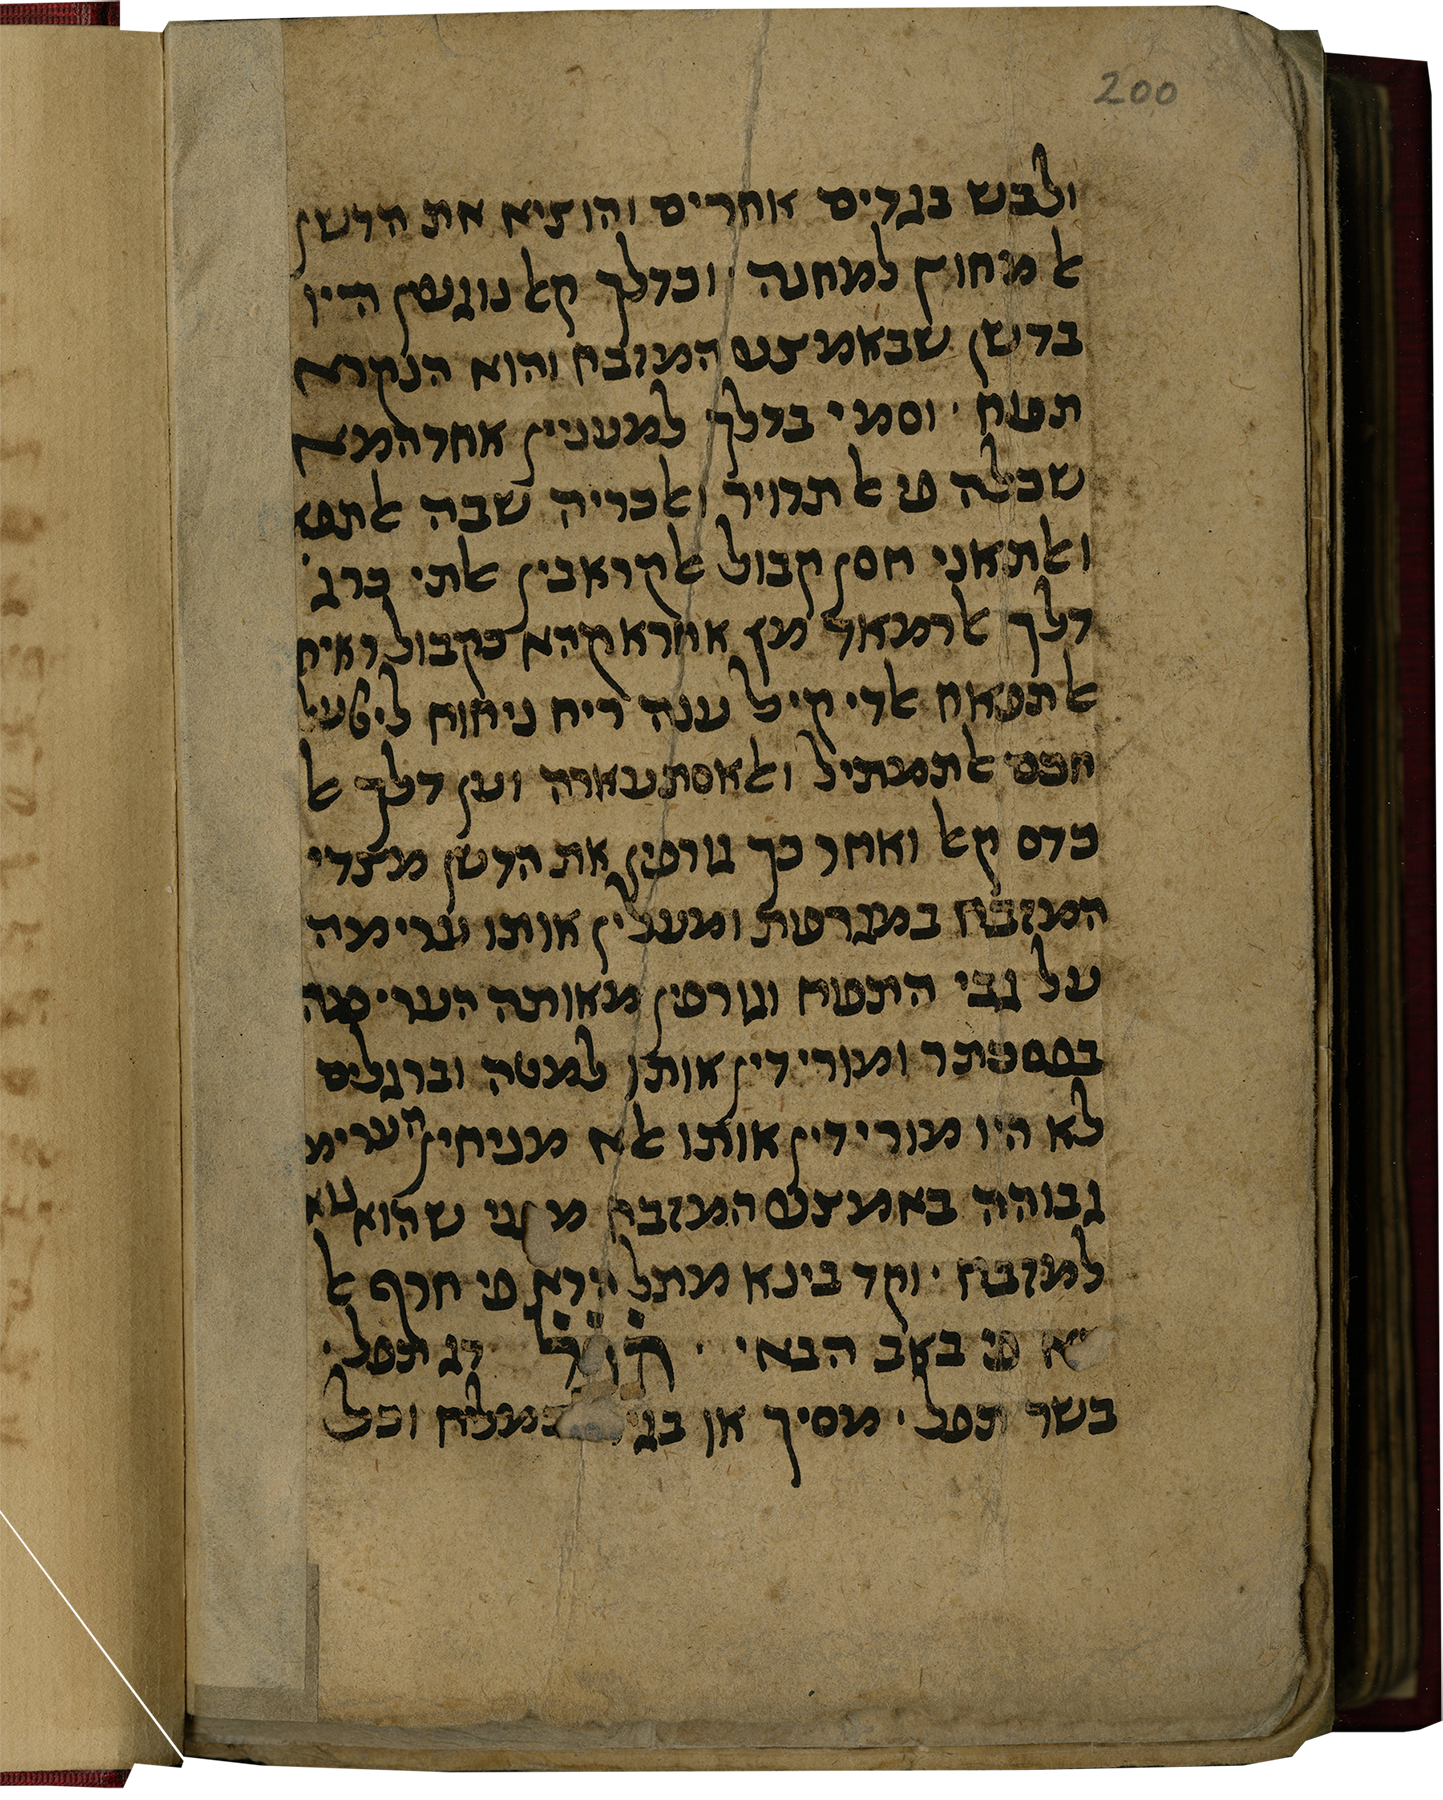 200
ולבש בגדים אחרים והוציא את הדשן
אל מחוץ למחנה · וכדלך קאל נוגעין היו
בדשן שבאמצע המזבח והוא הנקרא
תפוח · וסמי בדלך למעניין אחדהמא
שכלה פי אלתדויר ואכריה שבה אלתפא
ואלתאני חסן קבול אלקראבין אלתי
דלך אלרמאד מן אתראקהא כקבול ראיח
אלתפאח אלדי קיל ענה ריח ניחוח
חכם אלתמתיל ואלאסתעארה וען דלך אל
כדס קאל ואחר כך גורפין את הדשן מצדי
המזבח במגרפות ומעלין אותו ערימה
על גבי התפוח וגורפין מאותה הערימה
בפסכתר ומורידין אותו למטה וברגלים
לא היו מורידין אותו אלא מניחין הערימ
גבוהה באמצע המזבח מפני שהוא נוא
למזבח · וקד בינא מתל הדא פי חרף אל
פי באב הבאי ·
בשר תפל · מסיך או במלח וכל